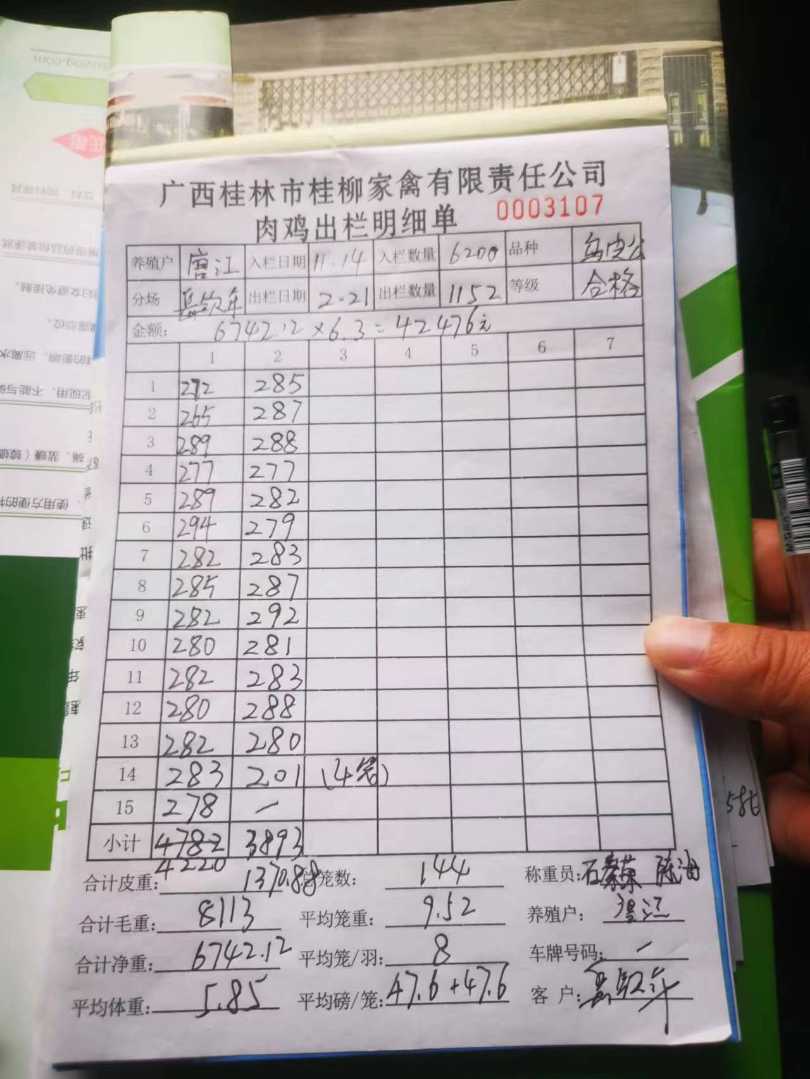 广西桂林市桂柳家禽有限责任公司
肉鸡出栏明细单 0003107
养殖户 唐江 入栏日期 11.14 入栏数量 6200 品种 乌皮公
分场 出栏日期 2.21 出栏数量 1152 等级 合格
金额: 6742.12×6.3=42476元
1 2 3 4 5 6 7
1 272 285
2 265 287
3 289 288
4 277 277
5 289 282
6 294 279
7 282 283
8 285 287
9 282 292
10 280 281
11 282 283
12 280 288
13 282 280
14 283 201 (4笼)
15 278 —
小计 4782 3893
4220
合计皮重: 1370.88 笼数: 144 称重员:
合计毛重: 8113 平均笼重: 9.52 养殖户:
合计净重: 6742.12 平均笼/羽: 8 车牌号码: —
平均体重: 5.85 平均磅/笼: 47.6+47.6 客户:
586